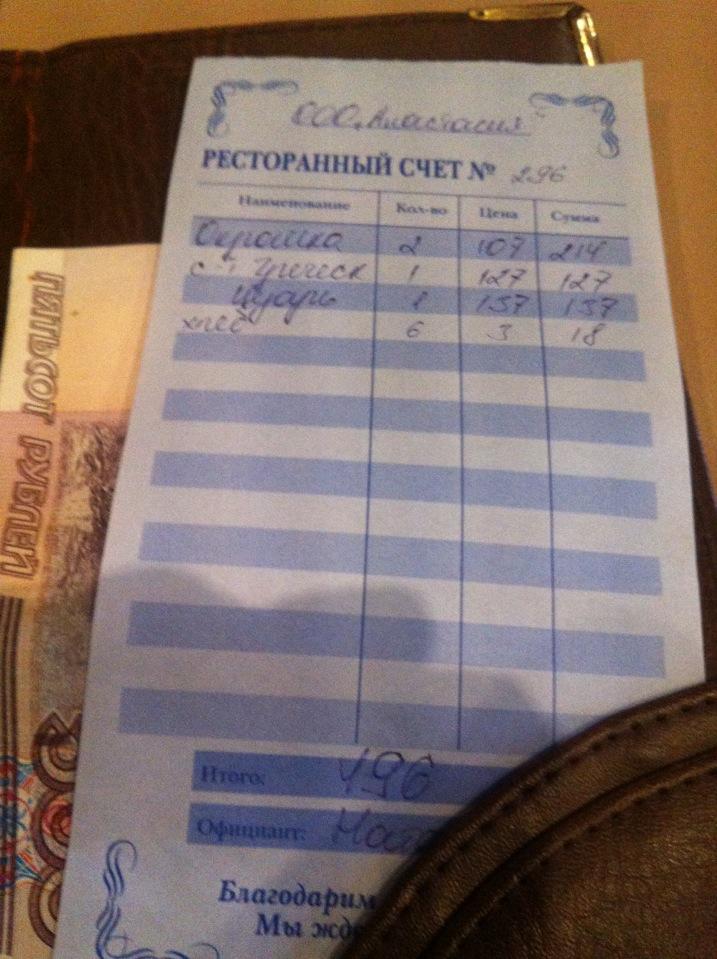 ООО „Анастасия"
РЕСТОРАННЫЙ СЧЕТ № 296
Наименование Кол-во Цена Сумма
Окрошка 2 107 214
с-т Греческ 1 127 127
Цезарь 1 137 137
хлеб 6 3 18
Итого: 496
Официант:
Благодарим
Мы
ПЯТЬСОТ РУБЛЕЙ